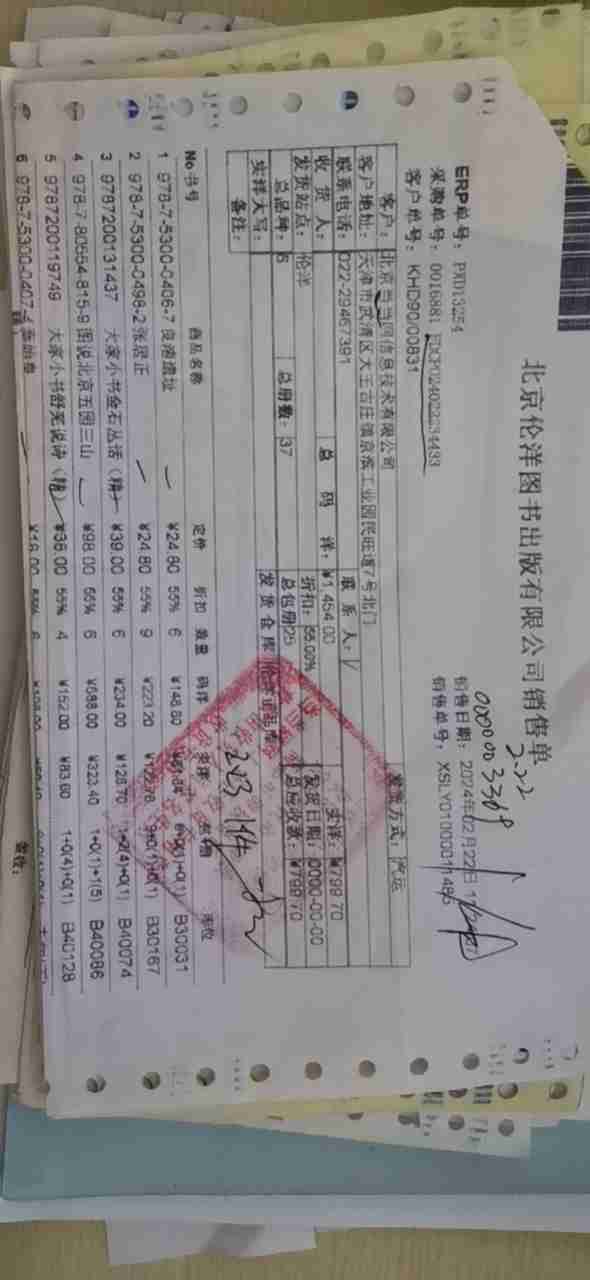 北京伦洋图书出版有限公司销售单
222
0000003369
ERP单号：PXD13254
销售日期：2024年02月22日
采购单号：0016881
销售单号：XSLY01000011486
客户单号：KHD90/00831
客户：北京当当网信息技术有限公司
发货方式：汽运
客户地址：天津市武清区大王古庄镇京滨工业园民旺道7号北门
联系电话：022-29467391
联系人：
收货人：
总码洋：¥1 454.00
实洋：¥799.70
发货站点：伦洋
折扣：55.00%
发货日期：0000-00-00
总品种：6
总册数：37
总包册25
总应收款：¥799.70
实洋大写：
发货仓库
备注：
2件
No 书号 商品名称 定价 折扣 数量 码洋 实洋
1 978-7-5300-0406-7 良渚遗址 ¥24.80 55% 6 ¥148.80 B30031
2 978-7-5300-0498-2 张居正 ¥24.80 55% 9 ¥223.20 B30167
3 9787200131437 大家小书金石丛话（精） ¥39.00 55% 6 ¥234.00 ¥128.70 B40074
4 978-7-80554-815-9 图说北京五园三山 ¥98.00 55% 6 ¥588.00 ¥323.40 1+0(1)+1(5) B40086
5 9787200119749 大家小书舒芜说诗（精） ¥38.00 55% 4 ¥152.00 ¥83.60 1+0(4)+0(1) B40128
6 978-7-5300-0407-4 ¥18.00 55% 6